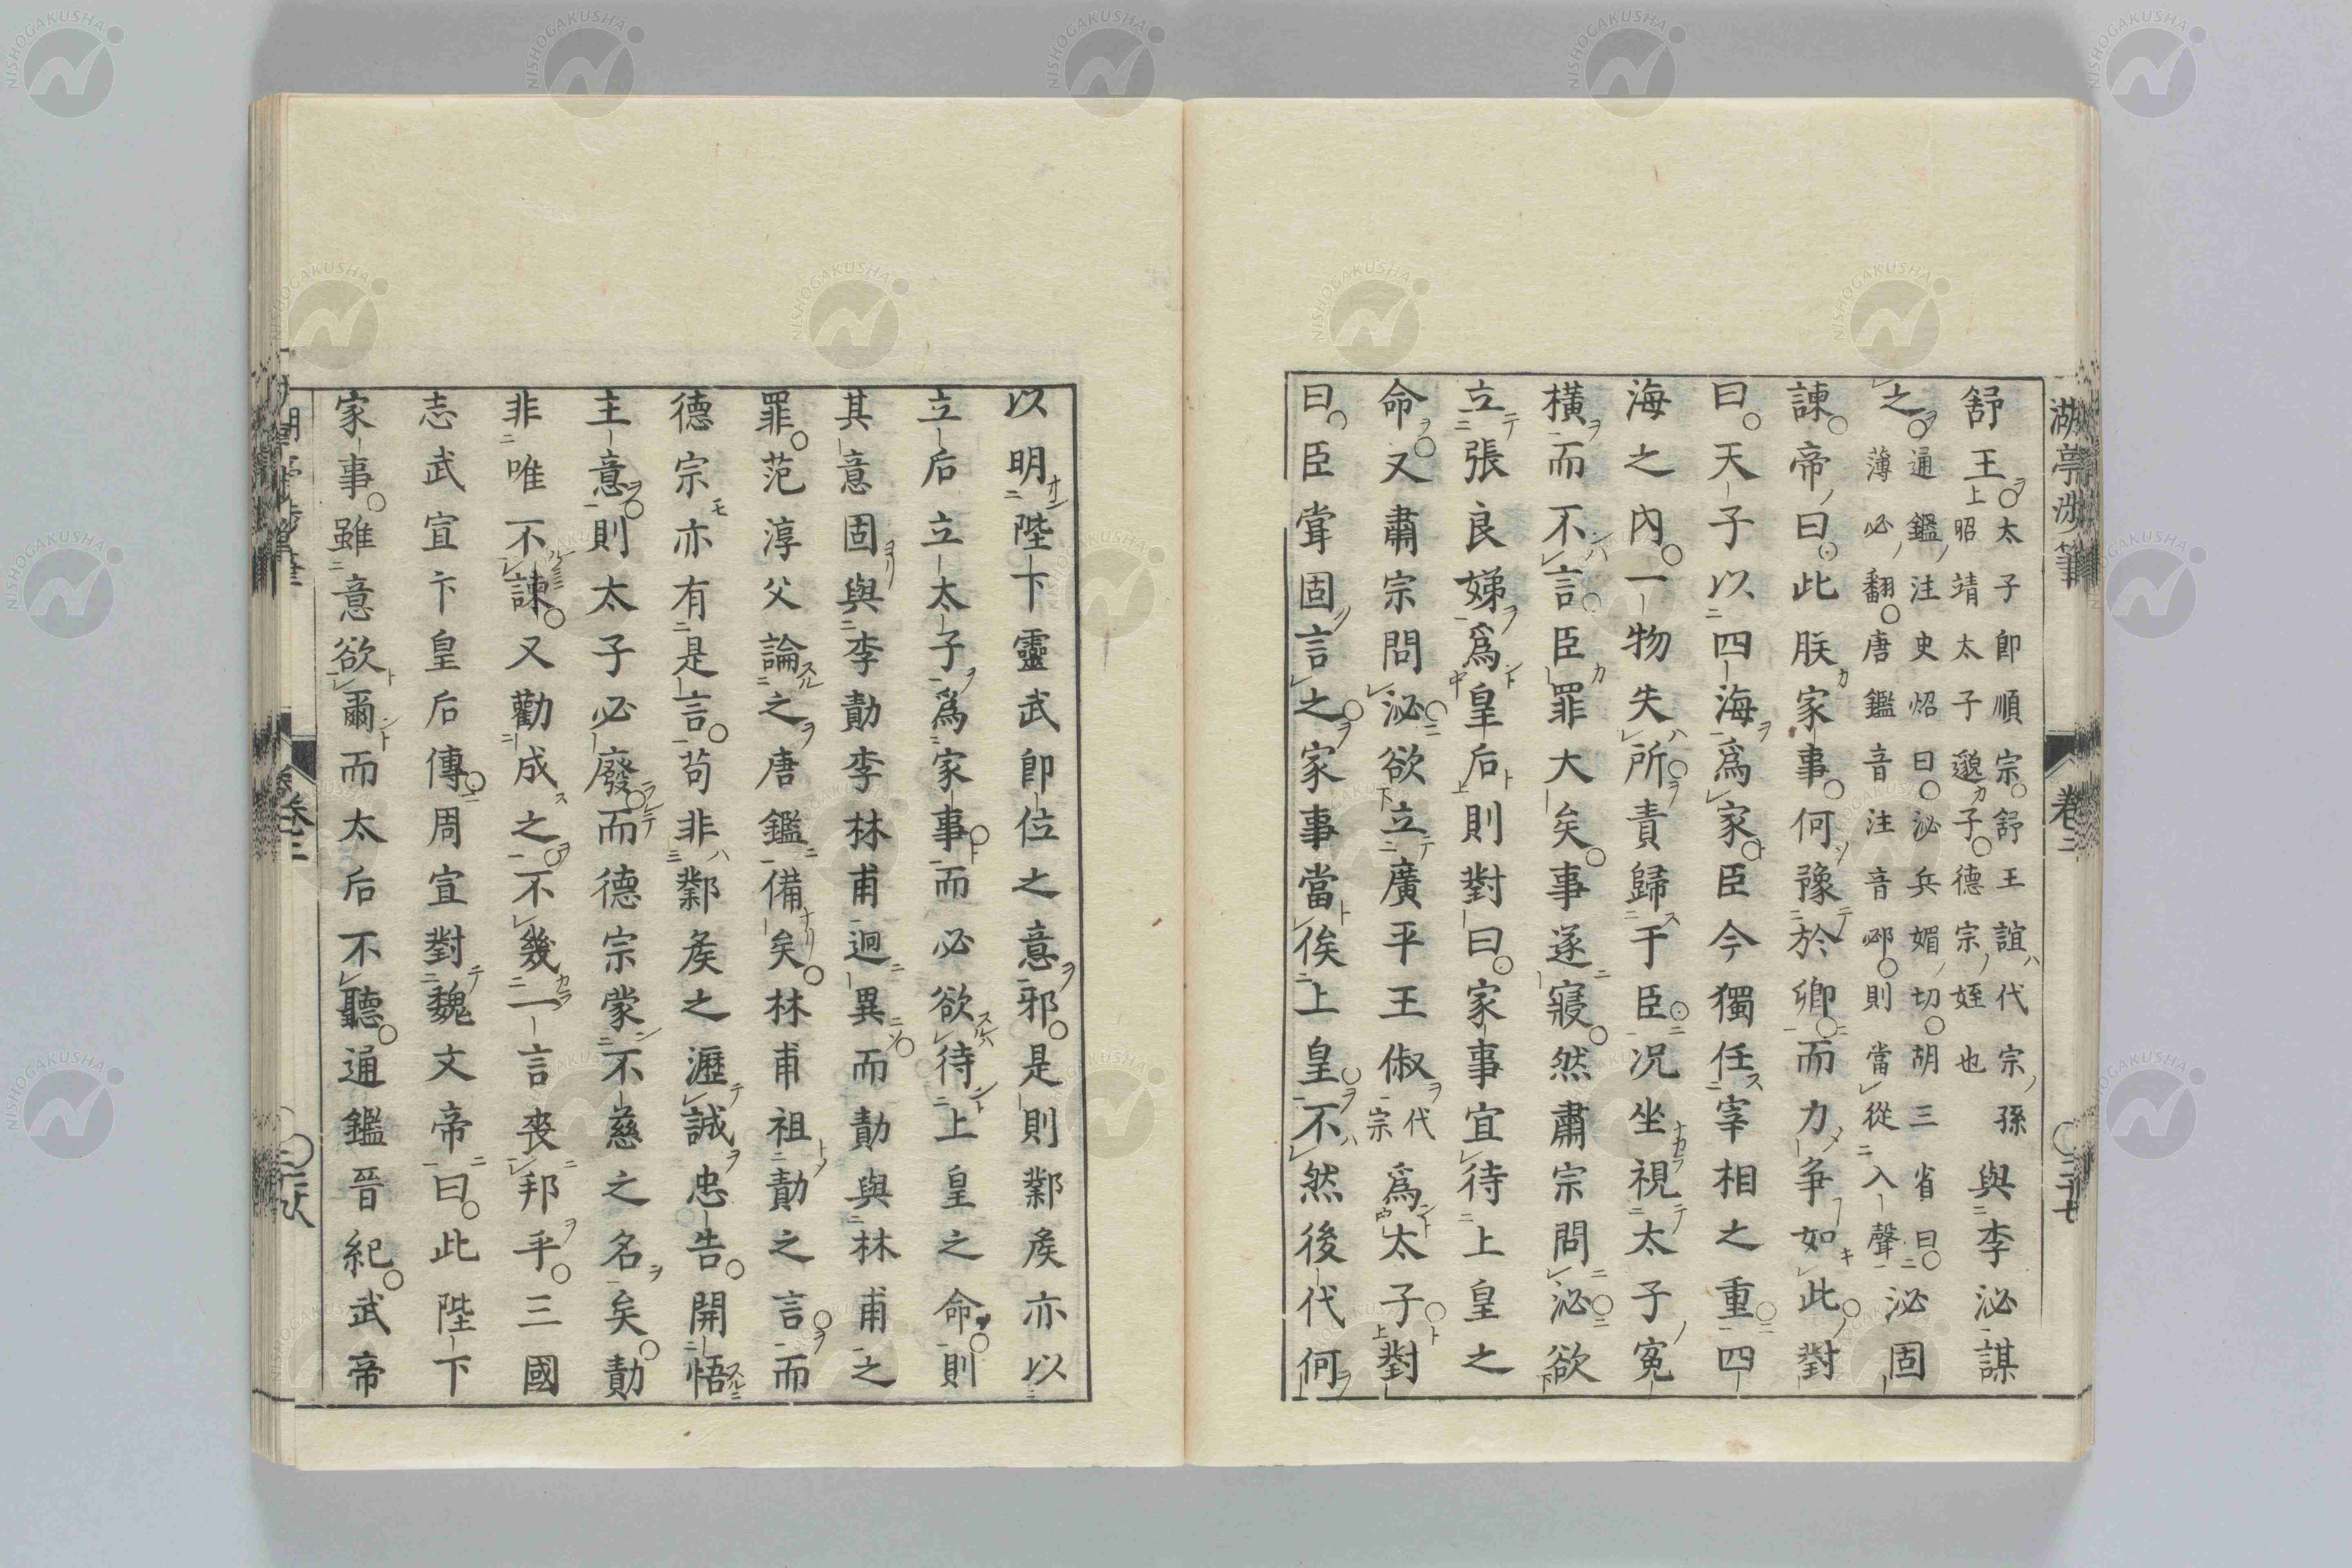 湖亭涉筆 卷三
舒王太子卽順宗舒王誼代宗孫昭靖太子邈子德宗姪也與李泌謀
之通鑑注史炤曰泌兵媚切胡三省曰薄必翻唐鑑音注音邲則當從入聲泌固
諫帝曰此朕家事何豫於卿而力爭如此對
曰天子以四海爲家臣今獨任宰相之重四
海之內一物失所責歸于臣况坐視太子冤
橫而不言臣罪大矣事遂寢然肅宗問泌欲
立張良娣爲皇后則對曰家事宜待上皇之
命又肅宗問泌欲立廣平王俶代宗爲太子對
曰臣甞固言之家事當俟上皇不然後代何
以明陛下靈武卽位之意邪是則鄴矦亦以
立后立太子爲家事而必欲待上皇之命則
其意固與李勣李林甫迥異而勣與林甫之
罪范淳父論之唐鑑備矣林甫祖勣之言而
德宗亦有是言苟非鄴矦之瀝誠忠告開悟
主意則太子必廢而德宗蒙不慈之名矣勣
非唯不諫又勸成之不幾一言喪邦乎三國
志武宣卞皇后傳周宣對魏文帝曰此陛下
家事雖意欲爾而太后不聽通鑑晉紀武帝